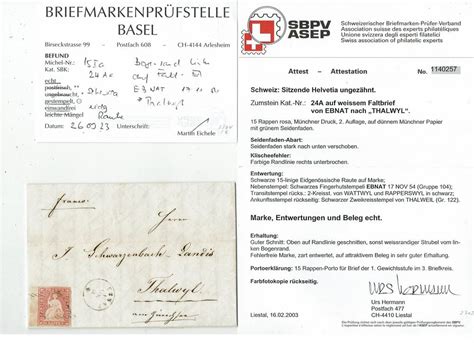 BRIEFMARKENPRÜFSTELLE
BASEL
Birseckstrasse 99 - Postfach 608 - CH-4144 Arlesheim
BEFUND
Michel-Nr:
Kat. SBK: 24A
echt
postfrisch
ungebraucht
gestempelt
einwandfrei
leichte Mängel
EBNAT
"Thalwyl"
Raute
Datum: 26.09.23
Martin Eichele
SBPV
ASEP
Schweizerischer Briefmarken-Prüfer-Verband
Association suisse des experts philatéliques
Unione svizzera degli esperti filatelici
Swiss association of philatelic experts
Attest - Attestation
No. 1140257
Schweiz: Sitzende Helvetia ungezähnt.
Zumstein Kat.-Nr.: 24A auf weissem Faltbrief
von EBNAT nach „THALWYL“.
15 Rappen rosa, Münchner Druck, 2. Auflage, auf dünnem Münchner Papier
mit grünem Seidenfaden.
Seidenfaden-Abart:
Klischeefehler:
Farbige Randlinie rechts unterbrochen.
Entwertung:
Schwarze 15-linige Eidgenössische Raute auf Marke;
Nebenstempel: Schwarzes Fingerhutstempel EBNAT 17 NOV 54 (Gruppe 104);
Transitstempel rücks.: 2-Kreisst. von WATTWYL und RAPPERSWYL in schwarz;
Ankunftsst. rücks.: Schwarzer Zweikreisstempel von THALWEIL (Gr. 122).
Marke, Entwertungen und Beleg echt.
Erhaltung:
Guter Schnitt: Oben auf Randlinie geschnitten, sonst weissrandiger Strubel vom lin-
ken Bogenrand.
Fehlerfreie Marke, zart entwertet, auf attraktivem Beleg in sehr guter Erhaltung.
Portoerklärung: 15 Rappen-Porto für Brief der 1. Gewichtsstufe im 3. Briefkreis.
Farbfotokopie rückseitig.
Urs Hermann
Postfach 477
CH-4410 Liestal
Liestal, 16.02.2003
Franco.
Herrn
J. Schwarzenbach-Landis
Thalwyl
am Zürichsee